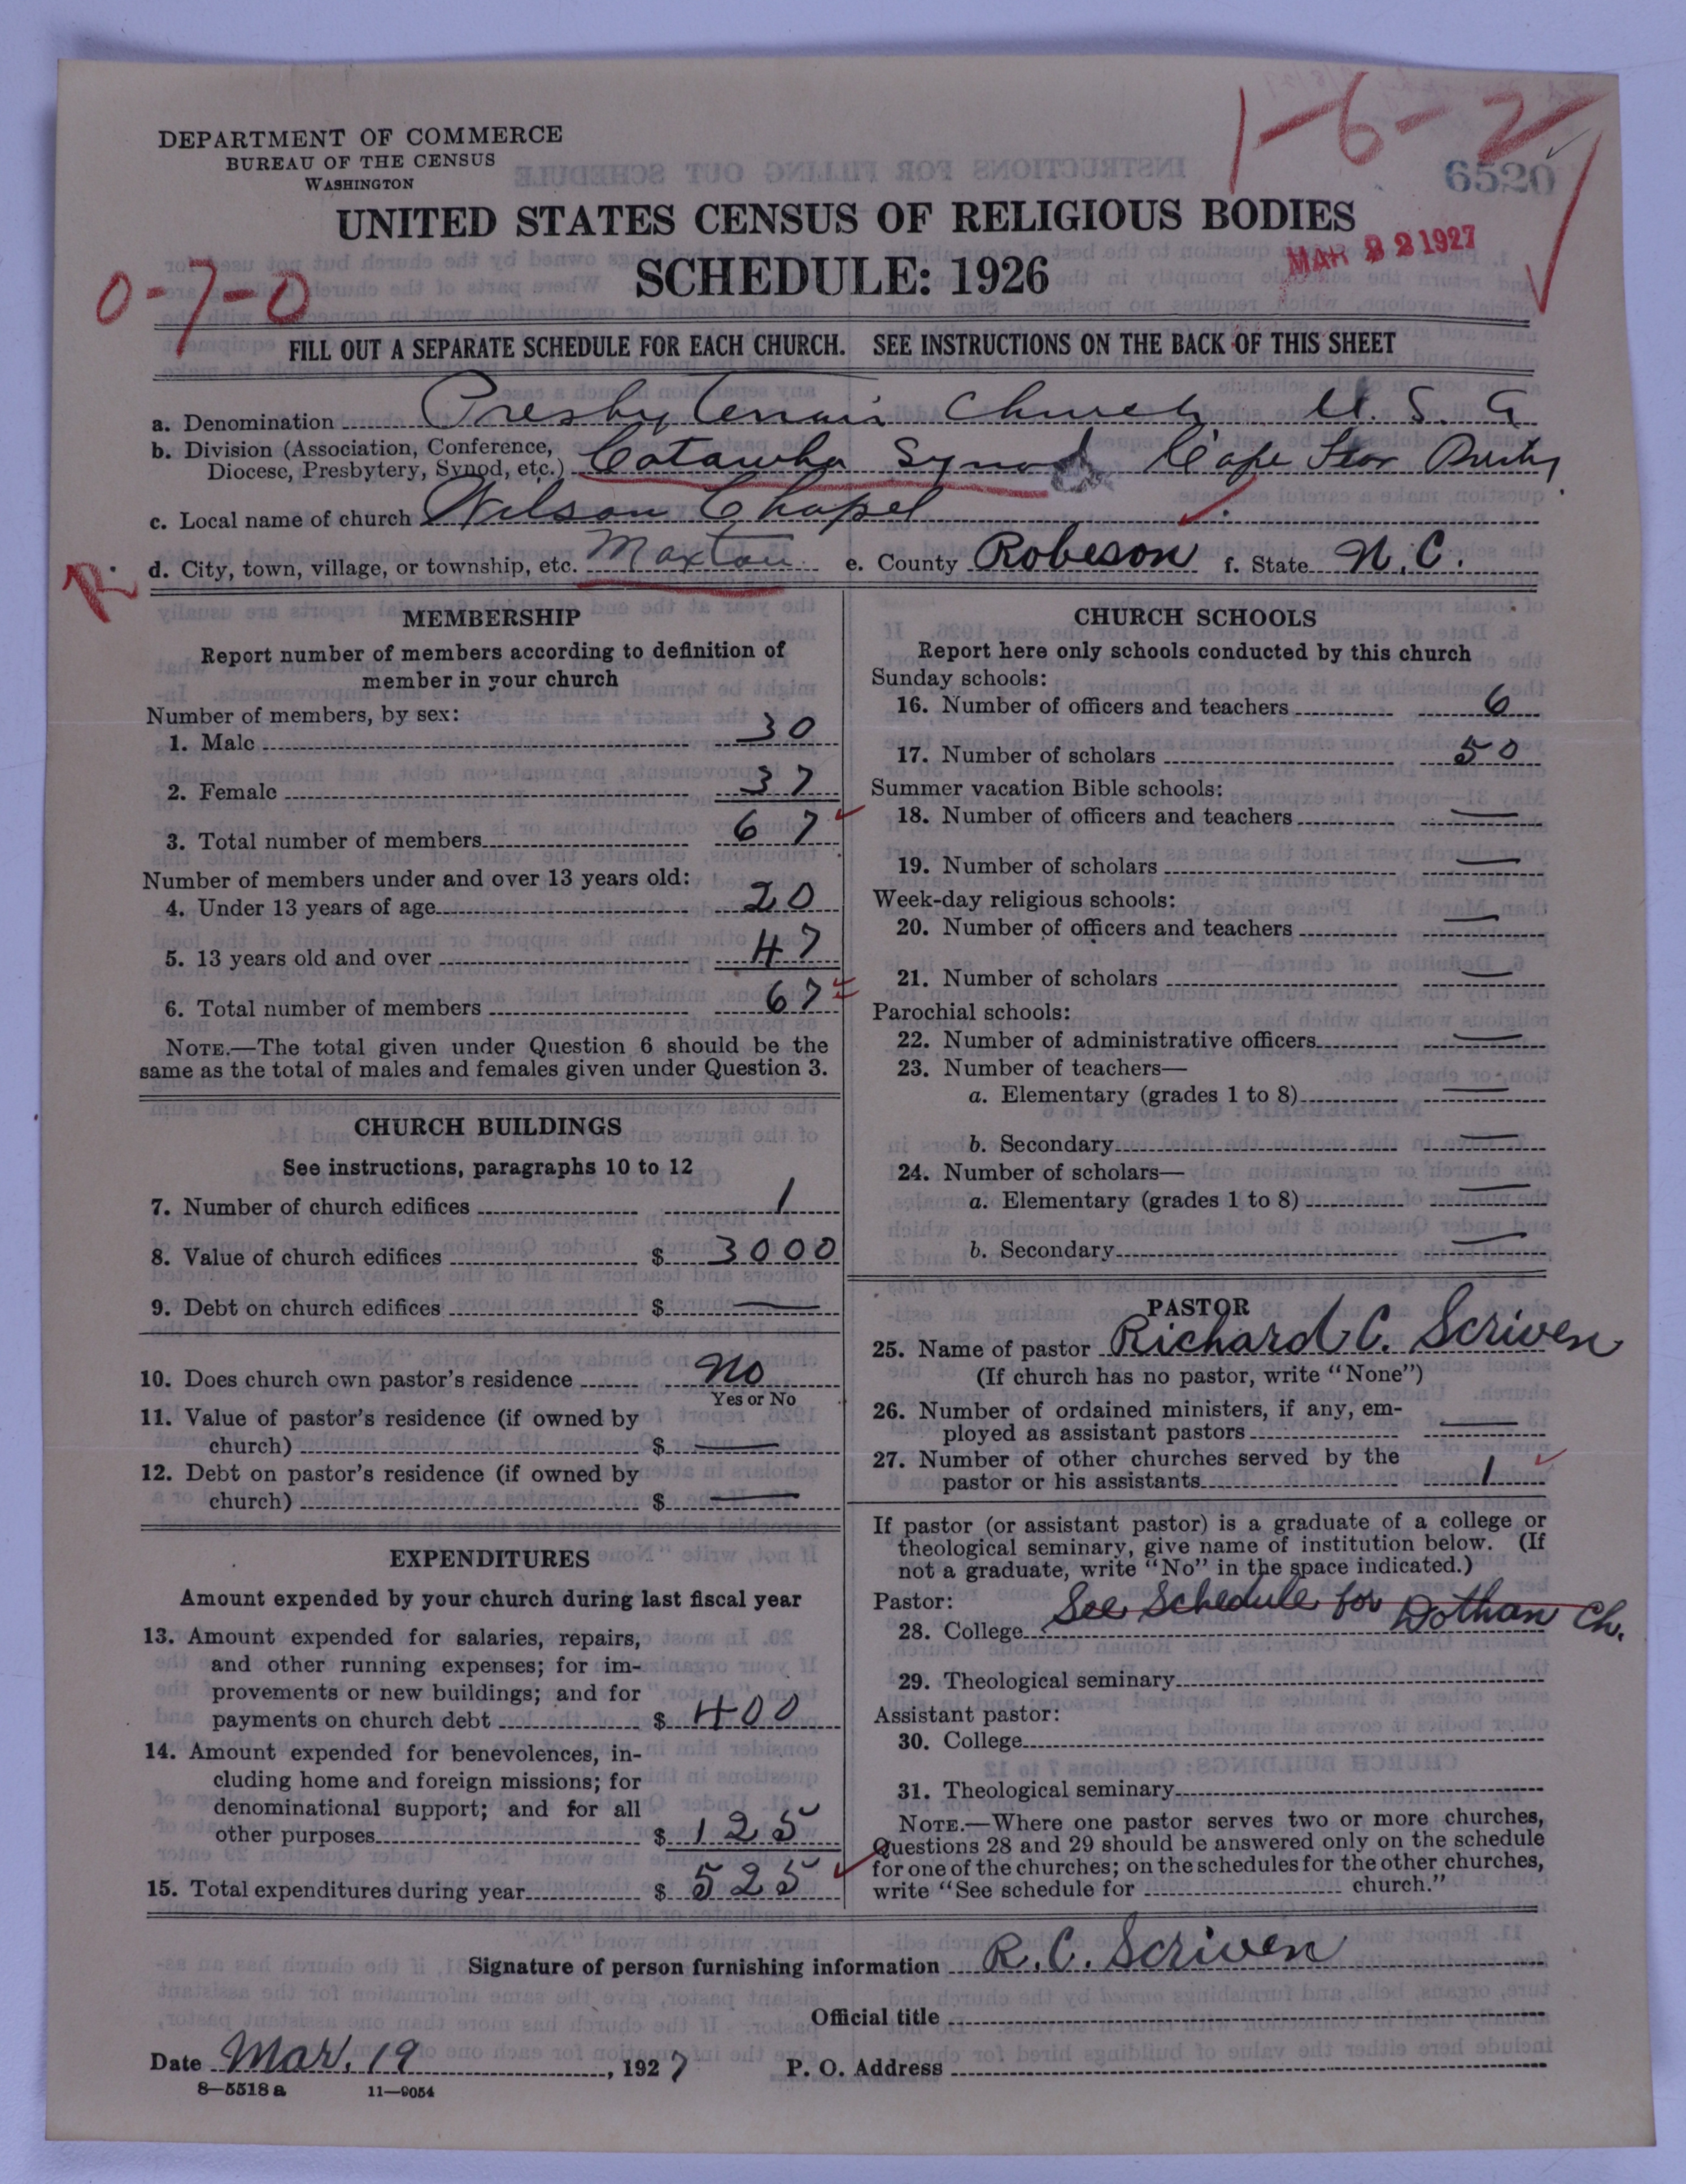 1-6-2
6520
DEPARTMENT OF COMMERCE
BUREAU OF THE CENSUS
WASHINGTON
UNITED STATES CENSUS OF RELIGIOUS BODIES
MAR 22 1927
SCHEDULE: 1926
0-7-0
FILL OUT A SEPARATE SCHEDULE FOR EACH CHURCH. SEE INSTRUCTIONS ON THE BACK OF THIS SHEET
a. Denomination Presbyterian Church U. S. A
b. Division (Association, Conference,
Diocese, Presbytery, Synod, etc.) Catawba Synod Cape Fear Presby
c. Local name of church Wilson Chapel
R. d. City, town, village, or township, etc. Maxton e. County Robeson f. State N.C.
MEMBERSHIP
Report number of members according to definition of
member in your church
Number of members, by sex:
1. Male 30
2. Female 37
3. Total number of members 67
Number of members under and over 13 years old:
4. Under 13 years of age 20
5. 13 years old and over 47
6. Total number of members 67
NOTE.—The total given under Question 6 should be the
same as the total of males and females given under Question 3.
CHURCH BUILDINGS
See instructions, paragraphs 10 to 12
7. Number of church edifices 1
8. Value of church edifices $ 3000
9. Debt on church edifices $ —
10. Does church own pastor's residence No
Yes or No
11. Value of pastor's residence (if owned by
church) $ —
12. Debt on pastor's residence (if owned by
church) $ —
EXPENDITURES
Amount expended by your church during last fiscal year
13. Amount expended for salaries, repairs,
and other running expenses; for im-
provements or new buildings; and for
payments on church debt $ 400
14. Amount expended for benevolences, in-
cluding home and foreign missions; for
denominational support; and for all
other purposes $ 125
15. Total expenditures during year $ 525
CHURCH SCHOOLS
Report here only schools conducted by this church
Sunday schools:
16. Number of officers and teachers 6
17. Number of scholars 50
Summer vacation Bible schools:
18. Number of officers and teachers —
19. Number of scholars —
Week-day religious schools:
20. Number of officers and teachers —
21. Number of scholars —
Parochial schools:
22. Number of administrative officers —
23. Number of teachers—
a. Elementary (grades 1 to 8) —
b. Secondary —
24. Number of scholars—
a. Elementary (grades 1 to 8) —
b. Secondary —
PASTOR
25. Name of pastor Richard C. Scriven
(If church has no pastor, write "None")
26. Number of ordained ministers, if any, em-
ployed as assistant pastors —
27. Number of other churches served by the
pastor or his assistants 1
If pastor (or assistant pastor) is a graduate of a college or
theological seminary, give name of institution below. (If
not a graduate, write "No" in the space indicated.)
Pastor:
28. College See Schedule for Dothan Ch.
29. Theological seminary
Assistant pastor:
30. College
31. Theological seminary
NOTE.—Where one pastor serves two or more churches,
Questions 28 and 29 should be answered only on the schedule
for one of the churches; on the schedules for the other churches,
write "See schedule for church."
Signature of person furnishing information R. C. Scriven
Official title
Date Mar. 19, 1927 P. O. Address
8—5518a 11—9054